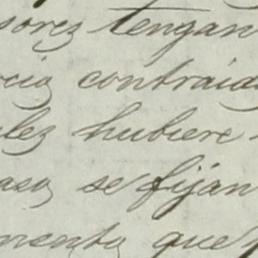 sores tengan
cia contraid
lez hubiere
asa se fijan
mento que